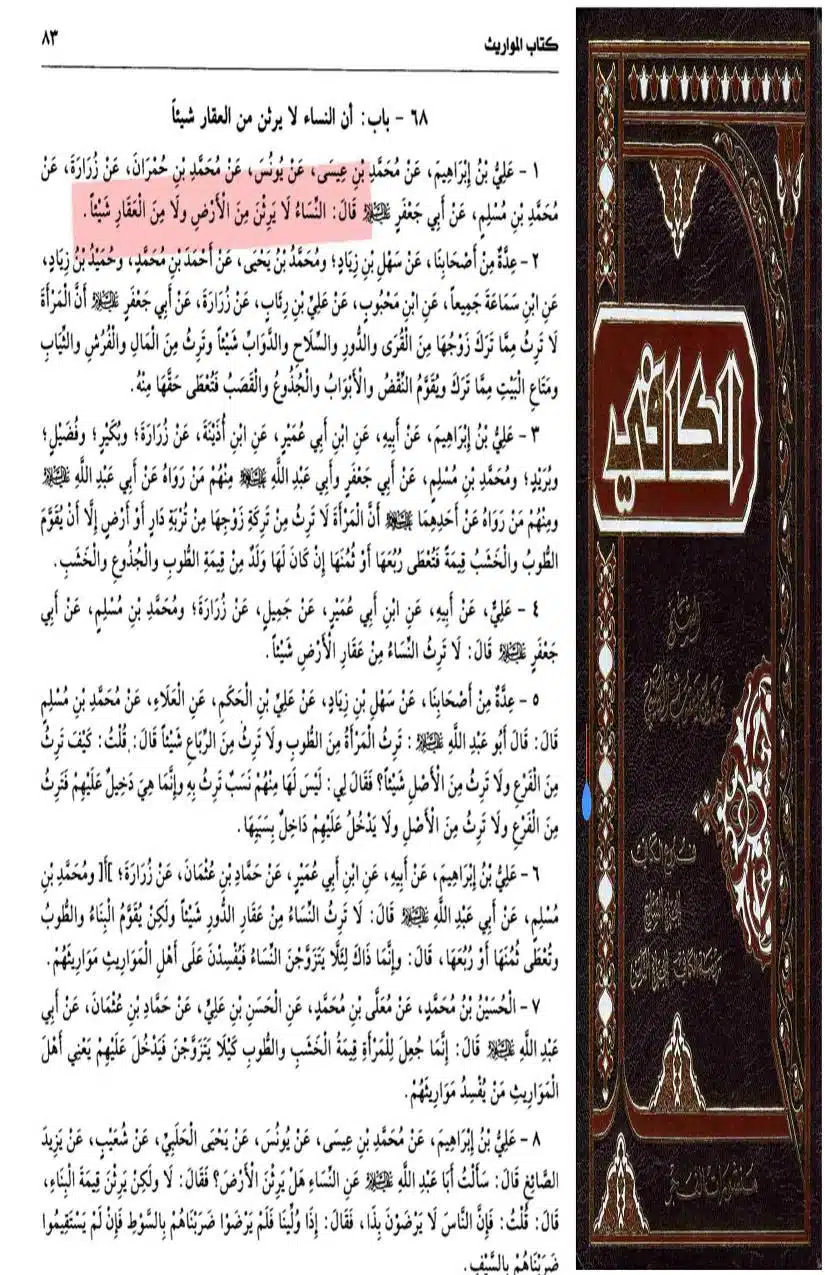 كتاب المواريث
٨٣
٦٨ - باب: أن النساء لا يرثن من العقار شيئاً
١ - عَلِيُّ بْنُ إِبْرَاهِيمَ، عَنْ مُحَمَّدِ بْنِ عِيسَى، عَنْ يُونُسَ، عَنْ مُحَمَّدِ بْنِ حُمْرَانَ، عَنْ زُرَارَةَ، عَنْ
مُحَمَّدِ بْنِ مُسْلِمٍ، عَنْ أَبِي جَعْفَرٍ عليه السلام قَالَ: النِّسَاءُ لَا يَرِثْنَ مِنَ الْأَرْضِ ولَا مِنَ الْعَقَارِ شَيْئاً.
٢ - عِدَّةٌ مِنْ أَصْحَابِنَا، عَنْ سَهْلِ بْنِ زِيَادٍ؛ ومُحَمَّدُ بْنُ يَحْيَى، عَنْ أَحْمَدَ بْنِ مُحَمَّدٍ، وحُمَيْدُ بْنُ زِيَادٍ،
عَنِ ابْنِ سَمَاعَةَ جَمِيعاً، عَنِ ابْنِ مَحْبُوبٍ، عَنْ عَلِيِّ بْنِ رِئَابٍ، عَنْ زُرَارَةَ، عَنْ أَبِي جَعْفَرٍ عليه السلام أَنَّ الْمَرْأَةَ
لَا تَرِثُ مِمَّا تَرَكَ زَوْجُهَا مِنَ الْقُرَى والدُّورِ والسِّلَاحِ والدَّوَابِّ شَيْئاً وتَرِثُ مِنَ الْمَالِ والْفُرُشِ والثِّيَابِ
ومَتَاعِ الْبَيْتِ مِمَّا تَرَكَ ويُقَوَّمُ النِّقْضُ والْأَبْوَابُ والْجُذُوعُ والْقَصَبُ فَتُعْطَى حَقَّهَا مِنْهُ.
٣ - عَلِيُّ بْنُ إِبْرَاهِيمَ، عَنْ أَبِيهِ، عَنِ ابْنِ أَبِي عُمَيْرٍ، عَنِ ابْنِ أُذَيْنَةَ، عَنْ زُرَارَةَ؛ وبُكَيْرٍ؛ وفُضَيْلٍ؛
وبُرَيْدٍ؛ ومُحَمَّدِ بْنِ مُسْلِمٍ، عَنْ أَبِي جَعْفَرٍ وأَبِي عَبْدِ اللَّهِ عليه السلام مِنْهُمْ مَنْ رَوَاهُ عَنْ أَبِي عَبْدِ اللَّهِ عليه السلام
ومِنْهُمْ مَنْ رَوَاهُ عَنْ أَحَدِهِمَا عليه السلام أَنَّ الْمَرْأَةَ لَا تَرِثُ مِنْ تَرِكَةِ زَوْجِهَا مِنْ تُرْبَةِ دَارٍ أَوْ أَرْضٍ إِلَّا أَنْ يُقَوَّمَ
الطُّوبُ والْخَشَبُ قِيمَةً فَتُعْطَى رُبُعَهَا أَوْ ثُمُنَهَا إِنْ كَانَ لَهَا وَلَدٌ مِنْ قِيمَةِ الطُّوبِ والْجُذُوعِ والْخَشَبِ.
٤ - عَلِيٌّ، عَنْ أَبِيهِ، عَنِ ابْنِ أَبِي عُمَيْرٍ، عَنْ جَمِيلٍ، عَنْ زُرَارَةَ؛ ومُحَمَّدِ بْنِ مُسْلِمٍ، عَنْ أَبِي
جَعْفَرٍ عليه السلام قَالَ: لَا تَرِثُ النِّسَاءُ مِنْ عَقَارِ الْأَرْضِ شَيْئاً.
٥ - عِدَّةٌ مِنْ أَصْحَابِنَا، عَنْ سَهْلِ بْنِ زِيَادٍ، عَنْ عَلِيِّ بْنِ الْحَكَمِ، عَنِ الْعَلَاءِ، عَنْ مُحَمَّدِ بْنِ مُسْلِمٍ
قَالَ: قَالَ أَبُو عَبْدِ اللَّهِ عليه السلام: تَرِثُ الْمَرْأَةُ مِنَ الطُّوبِ ولَا تَرِثُ مِنَ الرِّبَاعِ شَيْئاً قَالَ: قُلْتُ: كَيْفَ تَرِثُ
مِنَ الْفَرْعِ ولَا تَرِثُ مِنَ الْأَصْلِ شَيْئاً؟ فَقَالَ لِي: لَيْسَ لَهَا مِنْهُمْ نَسَبٌ تَرِثُ بِهِ وإِنَّمَا هِيَ دَخِيلٌ عَلَيْهِمْ فَتَرِثُ
مِنَ الْفَرْعِ ولَا تَرِثُ مِنَ الْأَصْلِ ولَا يَدْخُلُ عَلَيْهِمْ دَاخِلٌ بِسَبَبِهَا.
٦ - عَلِيُّ بْنُ إِبْرَاهِيمَ، عَنْ أَبِيهِ، عَنِ ابْنِ أَبِي عُمَيْرٍ، عَنْ حَمَّادِ بْنِ عُثْمَانَ، عَنْ زُرَارَةَ؛ ]أَ[ ومُحَمَّدِ بْنِ
مُسْلِمٍ، عَنْ أَبِي عَبْدِ اللَّهِ عليه السلام قَالَ: لَا تَرِثُ النِّسَاءُ مِنْ عَقَارِ الدُّورِ شَيْئاً ولَكِنْ يُقَوَّمُ الْبِنَاءُ والطُّوبُ
وتُعْطَى ثُمُنَهَا أَوْ رُبُعَهَا، قَالَ: وإِنَّمَا ذَاكَ لِئَلَّا يَتَزَوَّجْنَ النِّسَاءُ فَيُفْسِدْنَ عَلَى أَهْلِ الْمَوَارِيثِ مَوَارِيثَهُمْ.
٧ - الْحُسَيْنُ بْنُ مُحَمَّدٍ، عَنْ مُعَلَّى بْنِ مُحَمَّدٍ، عَنِ الْحَسَنِ بْنِ عَلِيٍّ، عَنْ حَمَّادِ بْنِ عُثْمَانَ، عَنْ أَبِي
عَبْدِ اللَّهِ عليه السلام قَالَ: إِنَّمَا جُعِلَ لِلْمَرْأَةِ قِيمَةُ الْخَشَبِ والطُّوبِ كَيْلَا يَتَزَوَّجْنَ فَيَدْخُلَ عَلَيْهِمْ يَعْنِي أَهْلَ
الْمَوَارِيثِ مَنْ يُفْسِدُ مَوَارِيثَهُمْ.
٨ - عَلِيُّ بْنُ إِبْرَاهِيمَ، عَنْ مُحَمَّدِ بْنِ عِيسَى، عَنْ يُونُسَ، عَنْ يَحْيَى الْحَلَبِيِّ، عَنْ شُعَيْبٍ، عَنْ يَزِيدَ
الصَّائِغِ قَالَ: سَأَلْتُ أَبَا عَبْدِ اللَّهِ عليه السلام عَنِ النِّسَاءِ هَلْ يَرِثْنَ الْأَرْضَ؟ فَقَالَ: لَا ولَكِنْ يَرِثْنَ قِيمَةَ الْبِنَاءِ،
قَالَ: قُلْتُ: فَإِنَّ النَّاسَ لَا يَرْضَوْنَ بِذَا، فَقَالَ: إِذَا وُلِّينَا فَلَمْ يَرْضَوْا ضَرَبْنَاهُمْ بِالسَّوْطِ فَإِنْ لَمْ يَسْتَقِيمُوا
ضَرَبْنَاهُمْ بِالسَّيْفِ.
الكافي
فروع الكافي
منشورات الفجر